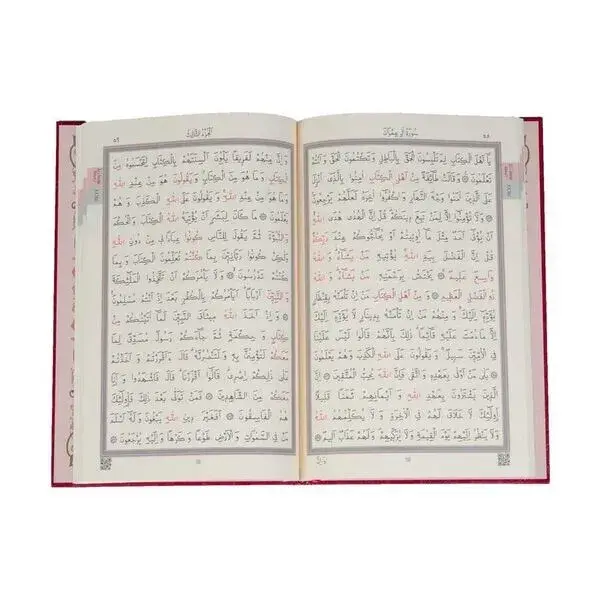 سُورَةُ اٰلِ عِمْرَانَ
٥٨
يَٓا اَهْلَ الْكِتَابِ لِمَ تَلْبِسُونَ الْحَقَّ بِالْبَاطِلِ وَتَكْتُمُونَ الْحَقَّ وَاَنْتُمْ
تَعْلَمُونَ وَقَالَتْ طَٓائِفَةٌ مِنْ اَهْلِ الْكِتَابِ اٰمِنُوا بِالَّذٖٓي اُنْزِلَ
عَلَى الَّذٖينَ اٰمَنُوا وَجْهَ النَّهَارِ وَاكْفُرُٓوا اٰخِرَهُ لَعَلَّهُمْ يَرْجِعُونَ
وَلَا تُؤْمِنُٓوا اِلَّا لِمَنْ تَبِعَ دٖينَكُمْ قُلْ اِنَّ الْهُدٰى هُدَى اللّٰهِ
اَنْ يُؤْتٰٓى اَحَدٌ مِثْلَ مَٓا اُوتٖيتُمْ اَوْ يُحَٓاجُّوكُمْ عِنْدَ رَبِّكُمْ
قُلْ اِنَّ الْفَضْلَ بِيَدِ اللّٰهِ يُؤْتٖيهِ مَنْ يَشَٓاءُ وَاللّٰهُ
وَاسِعٌ عَلٖيمٌ يَخْتَصُّ بِرَحْمَتِهٖ مَنْ يَشَٓاءُ وَاللّٰهُ
ذُو الْفَضْلِ الْعَظٖيمِ وَمِنْ اَهْلِ الْكِتَابِ مَنْ اِنْ تَأْمَنْهُ بِقِنْطَارٍ
يُؤَدِّهٖٓ اِلَيْكَ وَمِنْهُمْ مَنْ اِنْ تَأْمَنْهُ بِدٖينَارٍ لَا يُؤَدِّهٖٓ اِلَيْكَ
اِلَّا مَا دُمْتَ عَلَيْهِ قَٓائِمًا ذٰلِكَ بِاَنَّهُمْ قَالُوا لَيْسَ عَلَيْنَا
فِي الْاُمِّيّٖنَ سَبٖيلٌ وَيَقُولُونَ عَلَى اللّٰهِ الْكَذِبَ وَهُمْ يَعْلَمُونَ
بَلٰى مَنْ اَوْفٰى بِعَهْدِهٖ وَاتَّقٰى فَاِنَّ اللّٰهَ يُحِبُّ الْمُتَّقٖينَ اِنَّ
الَّذٖينَ يَشْتَرُونَ بِعَهْدِ اللّٰهِ وَاَيْمَانِهِمْ ثَمَنًا قَلٖيلًا
اُولٰٓئِكَ لَا خَلَاقَ لَهُمْ فِي الْاٰخِرَةِ وَلَا يُكَلِّمُهُمُ اللّٰهُ
وَلَا يَنْظُرُ اِلَيْهِمْ يَوْمَ الْقِيٰمَةِ وَلَا يُزَكّٖيهِمْ وَلَهُمْ عَذَابٌ اَلٖيمٌ
٥٩
اَلْجُزْءُ الثَّالِثُ
وَاِنَّ مِنْهُمْ لَفَرٖيقًا يَلْوُنَ اَلْسِنَتَهُمْ بِالْكِتَابِ لِتَحْسَبُوهُ مِنَ
الْكِتَابِ وَمَا هُوَ مِنَ الْكِتَابِ وَيَقُولُونَ هُوَ مِنْ عِنْدِ اللّٰهِ
وَمَا هُوَ مِنْ عِنْدِ اللّٰهِ وَيَقُولُونَ عَلَى اللّٰهِ الْكَذِبَ وَهُمْ
يَعْلَمُونَ مَا كَانَ لِبَشَرٍ اَنْ يُؤْتِيَهُ اللّٰهُ الْكِتَابَ وَالْحُكْمَ
وَالنُّبُوَّةَ ثُمَّ يَقُولَ لِلنَّاسِ كُونُوا عِبَادًا لٖي مِنْ دُونِ اللّٰهِ
وَلٰكِنْ كُونُوا رَبَّانِيّٖنَ بِمَا كُنْتُمْ تُعَلِّمُونَ الْكِتَابَ وَبِمَا
كُنْتُمْ تَدْرُسُونَ وَلَا يَأْمُرَكُمْ اَنْ تَتَّخِذُوا الْمَلٰٓئِكَةَ
وَالنَّبِيّٖنَ اَرْبَابًا اَيَأْمُرُكُمْ بِالْكُفْرِ بَعْدَ اِذْ اَنْتُمْ مُسْلِمُونَ
وَاِذْ اَخَذَ اللّٰهُ مٖيثَاقَ النَّبِيّٖنَ لَمَٓا اٰتَيْتُكُمْ مِنْ
كِتَابٍ وَحِكْمَةٍ ثُمَّ جَٓاءَكُمْ رَسُولٌ مُصَدِّقٌ لِمَا
مَعَكُمْ لَتُؤْمِنُنَّ بِهٖ وَلَتَنْصُرُنَّهُ قَالَ ءَاَقْرَرْتُمْ وَاَخَذْتُمْ
عَلٰى ذٰلِكُمْ اِصْرٖي قَالُٓوا اَقْرَرْنَا قَالَ فَاشْهَدُوا وَاَنَا۬
مَعَكُمْ مِنَ الشَّاهِدٖينَ فَمَنْ تَوَلّٰى بَعْدَ ذٰلِكَ فَاُولٰٓئِكَ
هُمُ الْفَاسِقُونَ اَفَغَيْرَ دٖينِ اللّٰهِ يَبْغُونَ وَلَهُٓ اَسْلَمَ
مَنْ فِي السَّمٰوَاتِ وَالْاَرْضِ طَوْعًا وَكَرْهًا وَاِلَيْهِ يُرْجَعُونَ